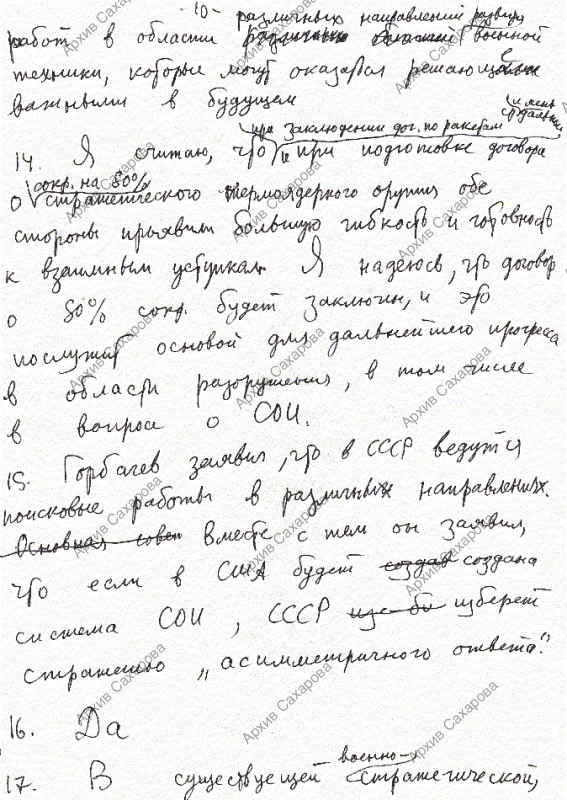 - 10 -
различных направлений развития
работ в области различных областей военной
техники, которые могут оказаться решающе
важными в будущем
при заключении дог. по ракетам
14. Я считаю, что и при подготовке договора
сокр. на 50%
о стратегического термоядерного оружия обе
стороны проявили большую гибкость и готовность
к взаимным уступкам. Я надеюсь, что договор
о 50% сокр. будет заключен, и это
послужит основой для дальнейшего прогресса
в области разоружения, в том числе
в вопросе о СОИ.
15. Горбачев заявил, что в СССР ведутся
поисковые работы в различных направлениях.
Основная совет Вместе с тем он заявил,
что если в США будет создав создана
система СОИ, СССР изберет
стратегию „асимметричного ответа".
16. Да
17. В существующей военно-стратегической,
Архив Сахарова